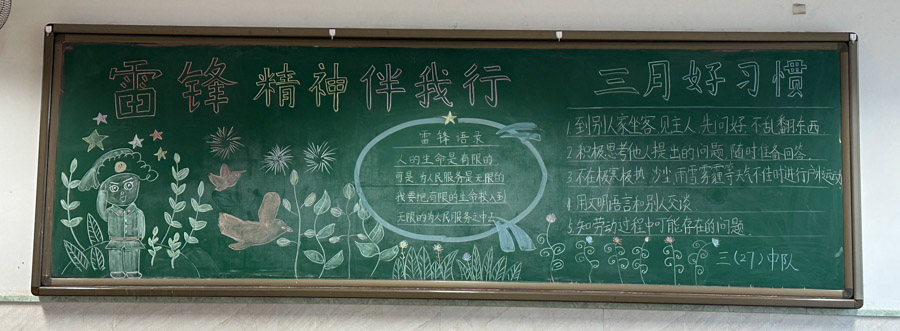 雷锋精神伴我行
雷锋语录
人的生命是有限的
可是为人民服务是无限的
我要把有限的生命投入到
无限的为人民服务之中去
三月好习惯
1.到别人家坐客,见主人,先问好,不乱翻东西
2.积极思考他人提出的问题,随时准备回答.
3.不在极寒极热,沙尘雨雪雾霾等天气不佳时进行户外运动
4.用文明语言和别人交谈
5.知劳动过程中可能存在的问题.
三(27)中队